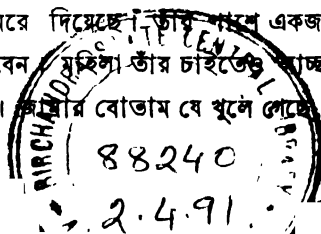 মরে দিয়েছে। তাঁর পাশে একজ
বেন। মহিলা তাঁর চাইতেও
বোতাম যে খুলে গেছে
BIRCHANDRA STATE CENTRAL LIBRARY
88240
2.4.91.